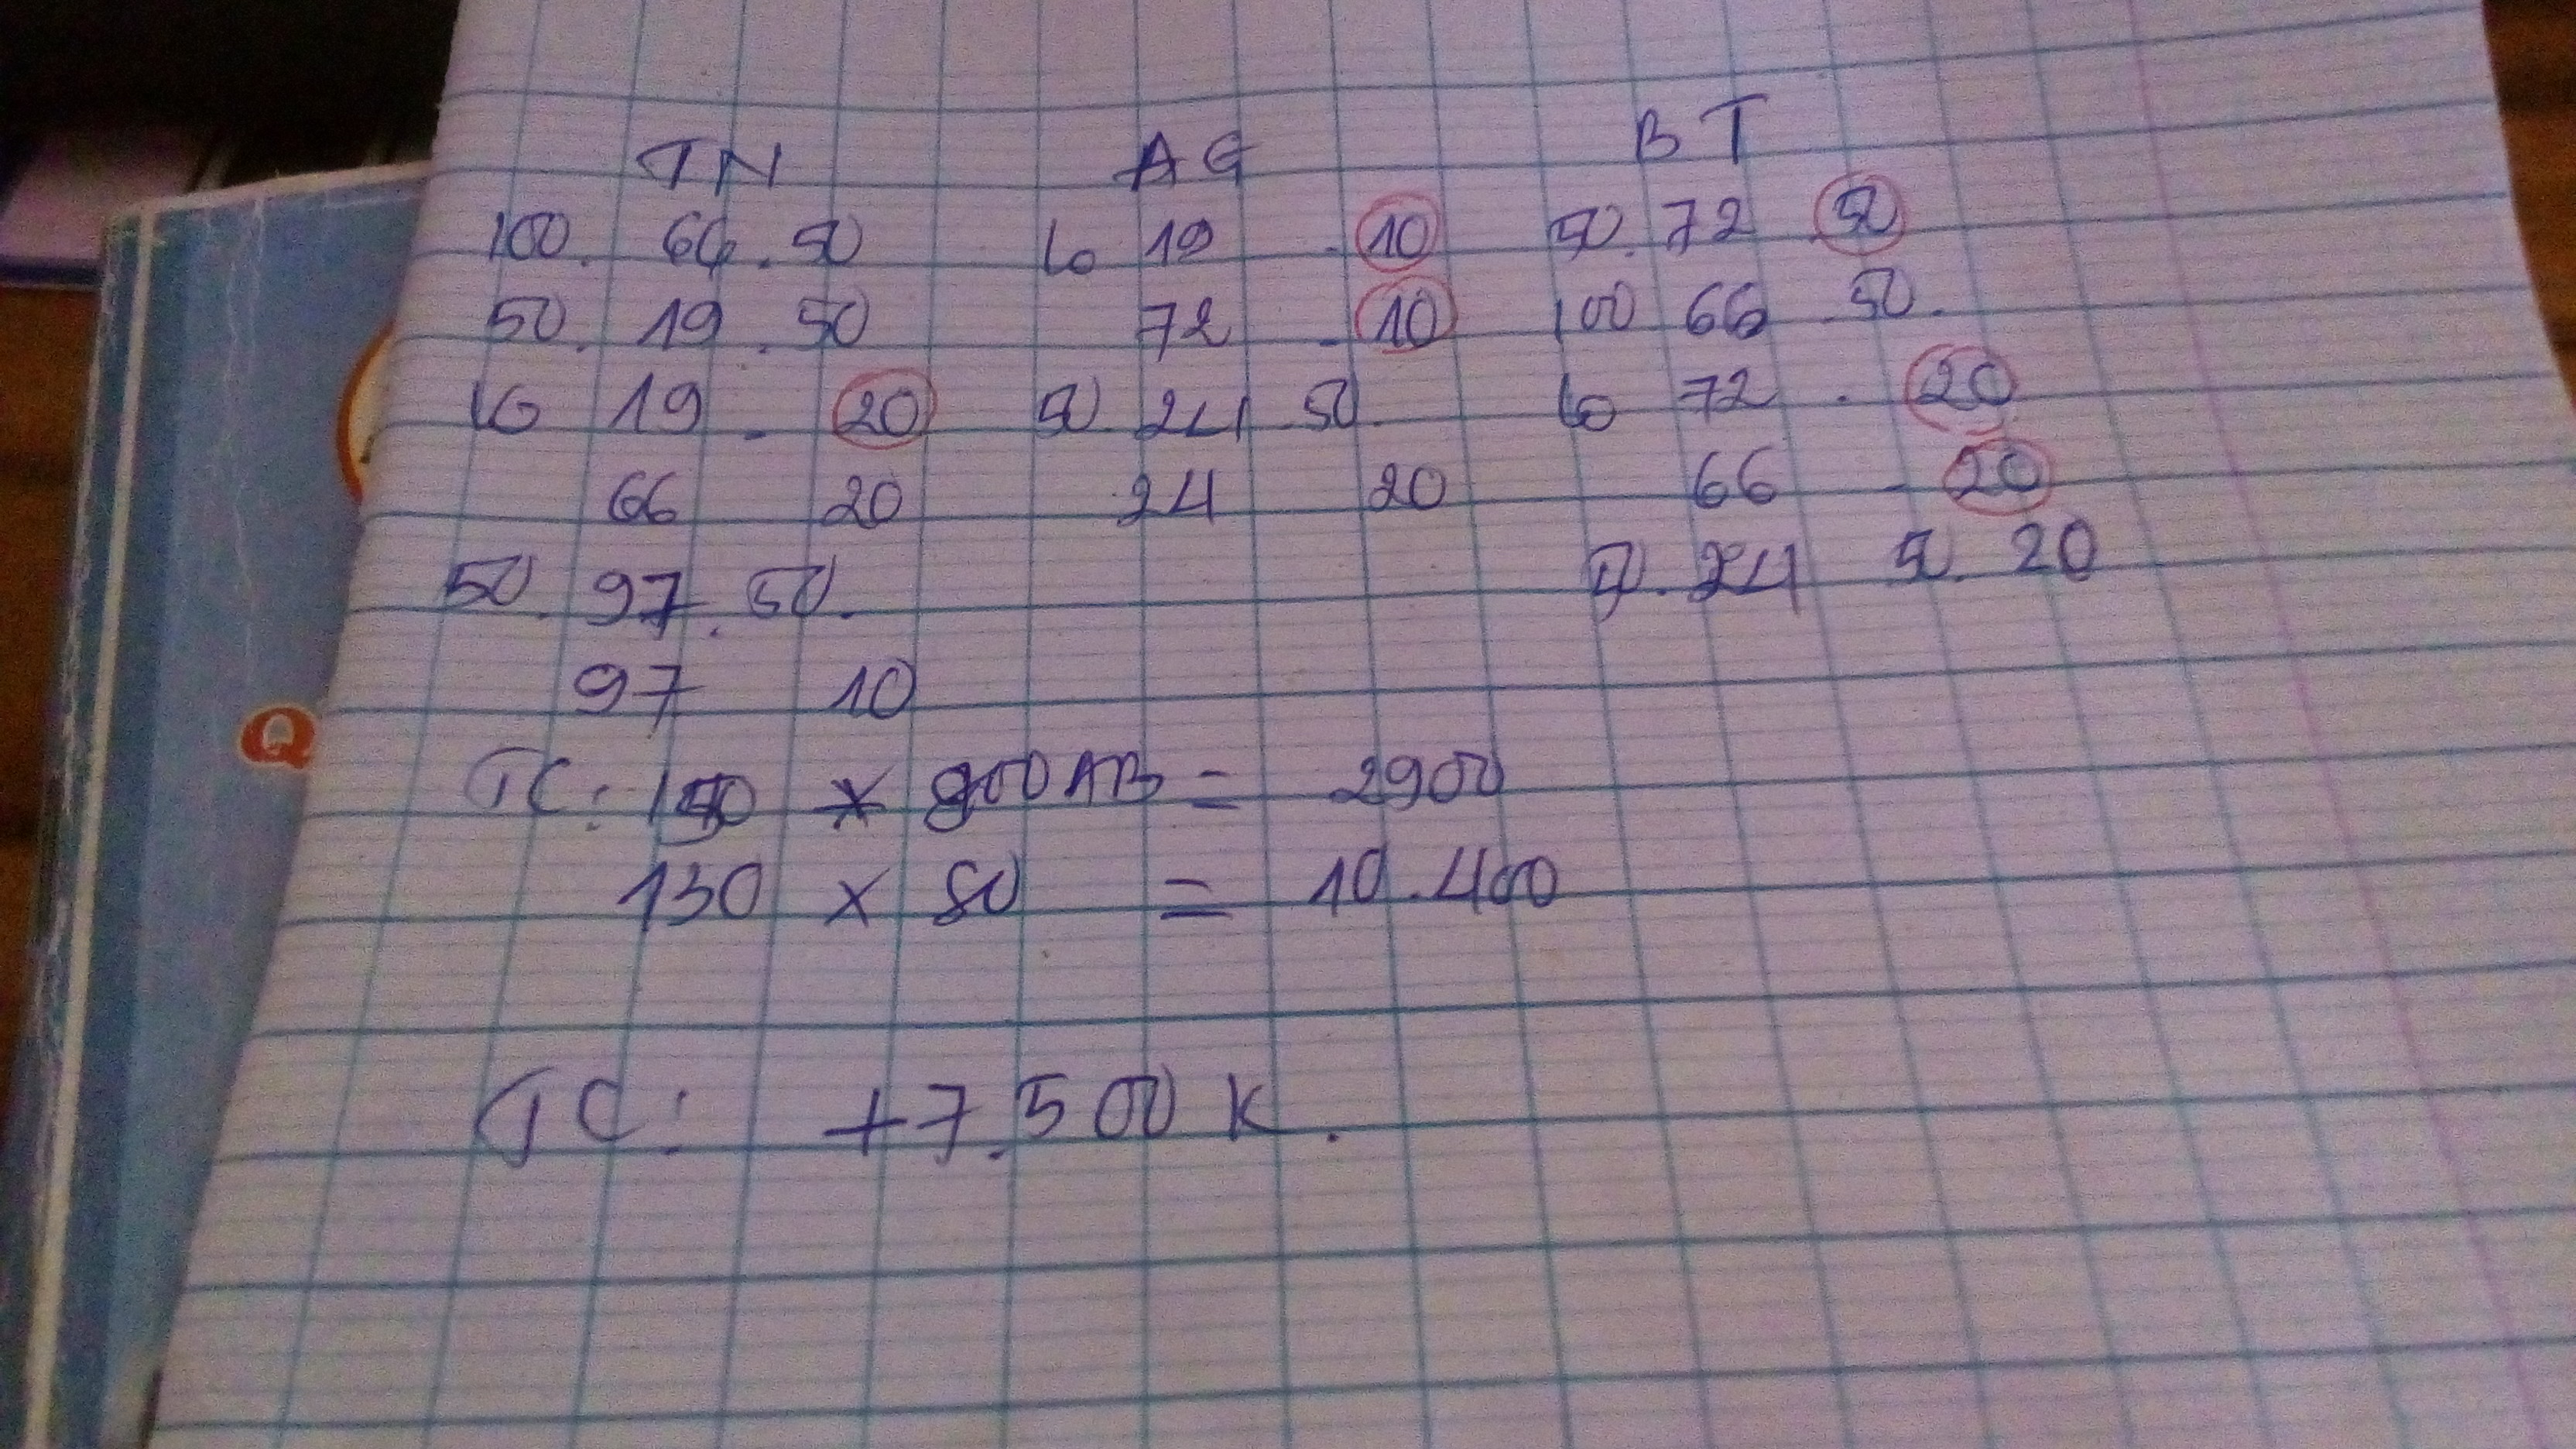 TN AG BT
100. 66. 50 lo 19 - 10 50. 72 50
50. 19. 50 72 - 10 100 66 50.
lo 19 - 20 50 24 50. lo 72 - 20
66 20 24 20 66 - 20
50. 97. 50. 50. 24 50. 20
97 10
TC: × 900 AB = 2900
130 × 80 = 10.400
TC: +7.500 K.
Q